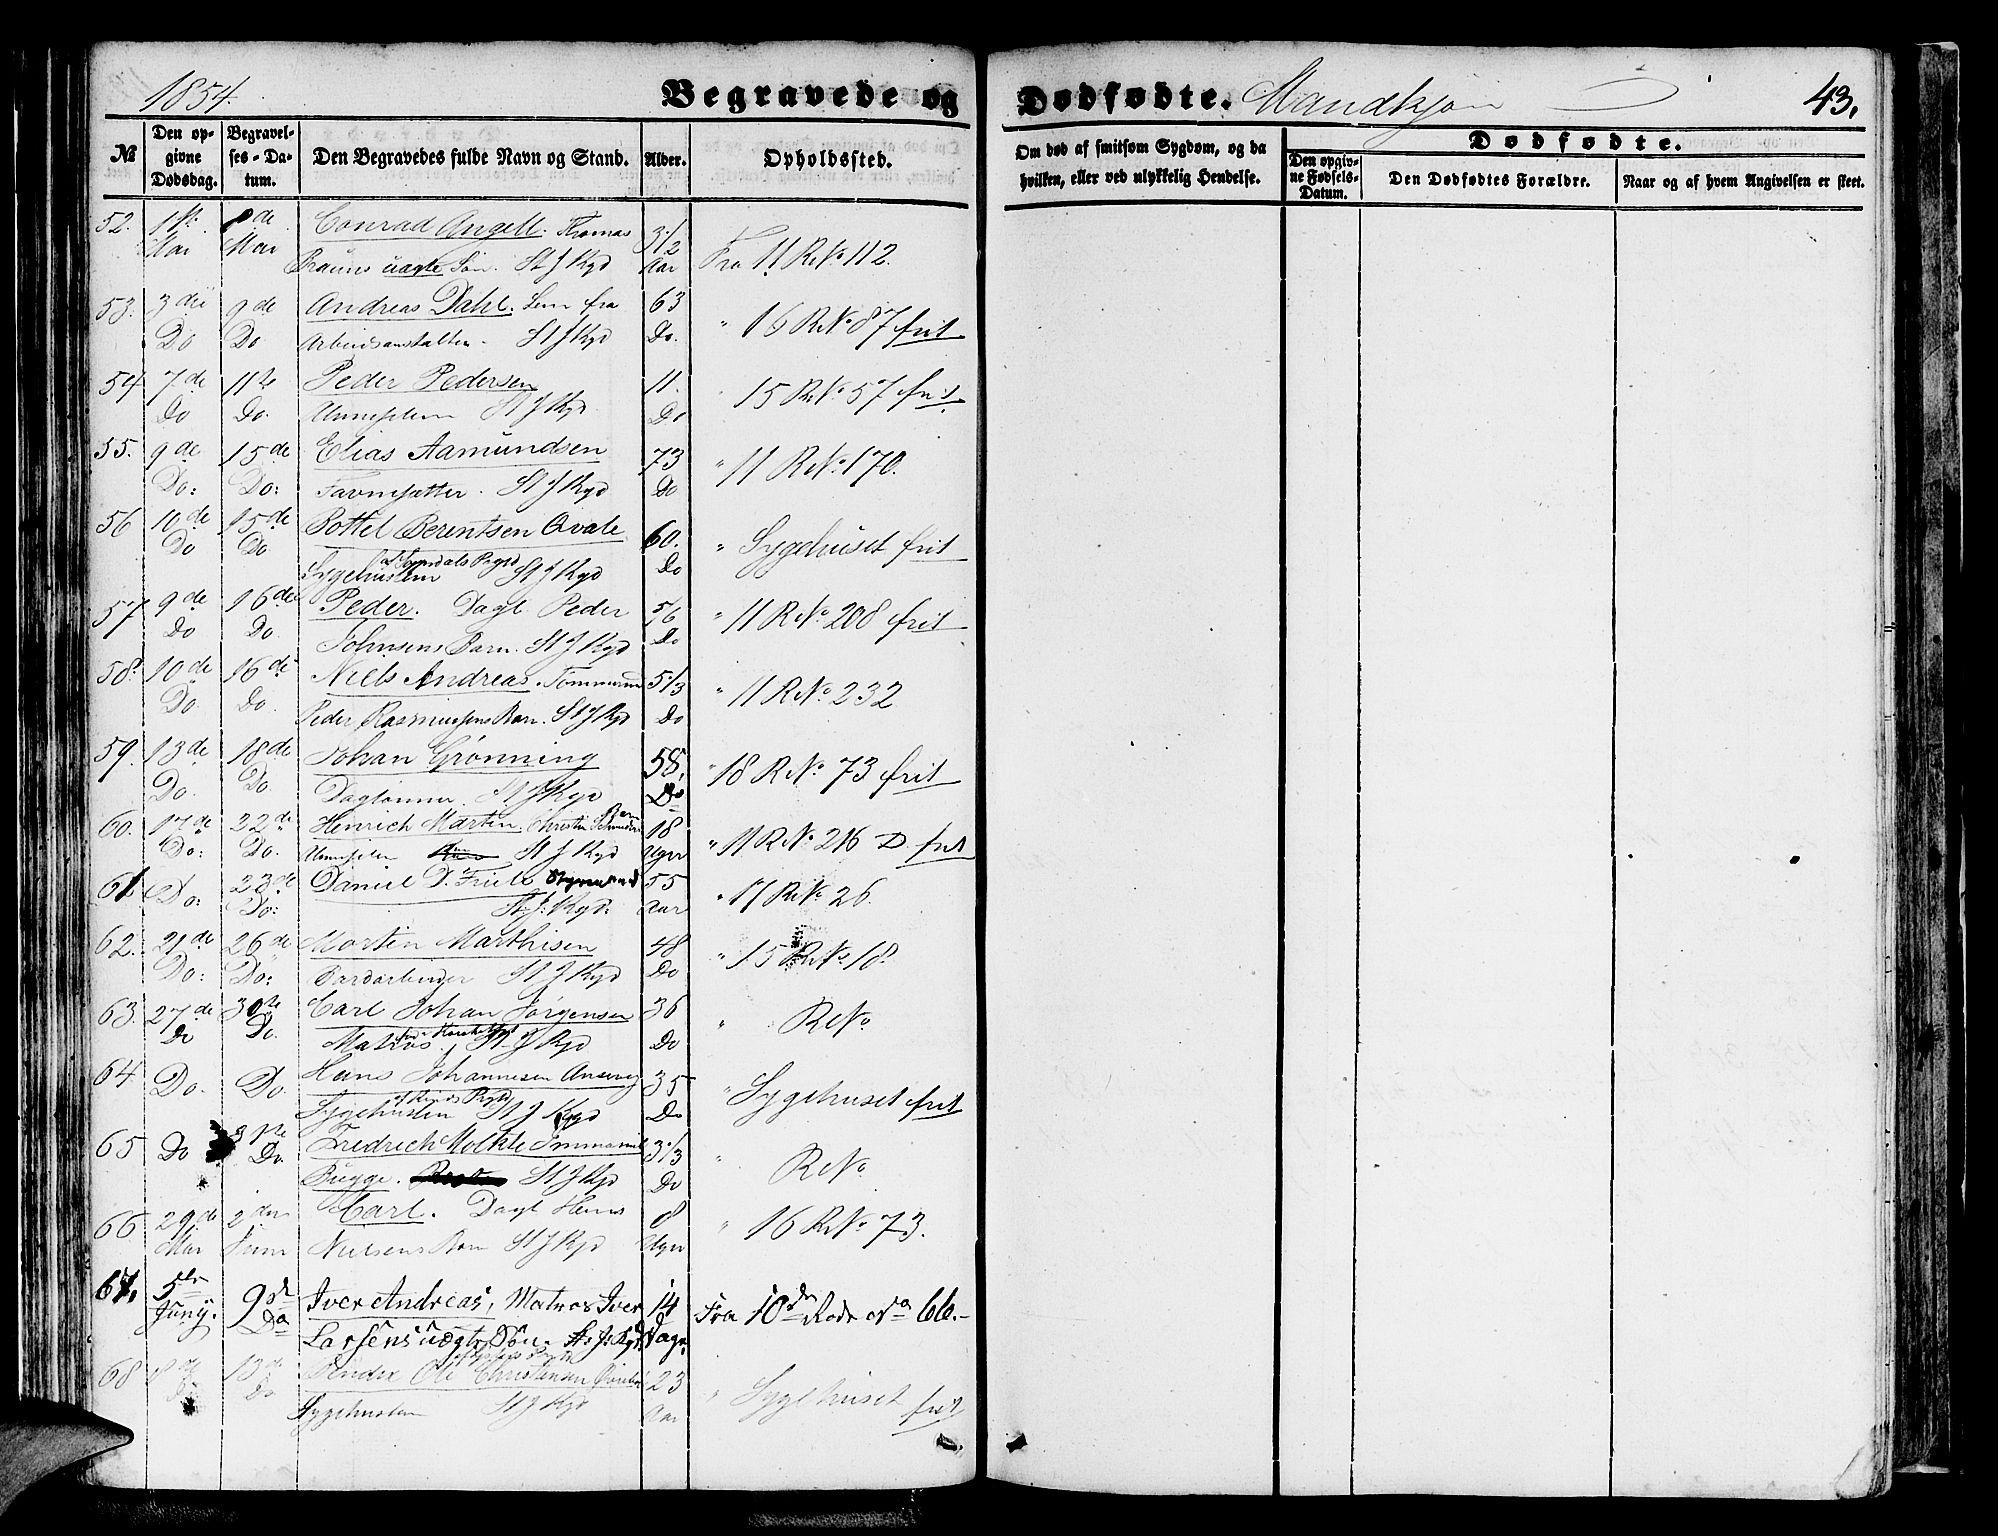 1854.
Begravede og
Dødfødte. Mandkjøn
43.
№
Den opgivne Dødsdag.
Begravelses-Datum.
Den Begravedes fulde Navn og Stand.
Alder.
Opholdssted.
Om død af smitsom Sygdom, og da hvilken, eller ved ulykkelig Hendelse.
Dødfødte.
Den opgivne Fødsels-Datum.
Den Dødfødtes Forældre.
Naar og af hvem Angivelsen er skeet.
52. 1ste 8de Conrad Angell. Thomas 3 1/2
Mai Mai Brauns uægte Søn. St J Kgd Aar Fra 11 R No 112.
53. 3die 9de Andreas Dahl. Lem fra 63
Do Do Arbeidsanstalten. St J Kgd Do. " 16 R No 87 frit
54 7de 11te Peder Pedersen 11.
Do Do. St J Kgd Do 15 R No 57 frit
55. 9de 15de Elias Aamundsen 73
Do: Do: Favnesætter. St J Kgd Do " 11 R No 170.
56 10de 15de Bottel Berentsen Qvale 60.
Do Do Sygehuslem St J Kgd Do " Sygehuset frit
57 9de 16de Peder. Dagl Peder 5/6
Do Do. Johnsens Barn. St J Kgd Do " 11 R No 208 frit
58. 10de 16de Niels Andreas. Tømmerm 5 1/3
Do. Do. Peder Rasmussens Barn. St J Kgd Do " 11 R No 232
59. 13de 18de Johan Grønning 58.
Do. Do. Daglønner. St J Kgd Do " 18 R No 73 frit
60. 17de 22de Henrich Martin. Barn 18
Do: Do. St J Kgd Uger " 11 R No 216 D frit
61. Do: 23de Daniel D. Friele 55
Do: St: J: Kgd: Aar " 17 R No 26.
62. 21de 26de Morten Marthisen 48
Do: Do: St J Kgd Do " 15 R No 18.
63. 27de 30te Carl Johan Jørgensen 36
Do Do. Matros. St J Kgd Do " R No
64 Do. Do. Hans Johannesen 35
Sygehuslem St J Kgd Do " Sygehuset frit
65 Do 31te Fredrich Moltke Immanuel 3 1/3
Do. Bugge. St J Kgd Do " R No
66 29de 2den Carl. Dagl Hans 8
Mai Juni Nielsens Barn St J Kgd Uger " 16 R No 73.
67. 5te 9de Iver Andreas, Matros Iver 14
Junij. Do Larsens uægte Søn. St. J. Kgd. Dage. Fra 10de Rode No 66.
68 8de 13de Ole Christensen 23
Do Do Sygehuslem St J Kgd Aar " Sygehuset frit